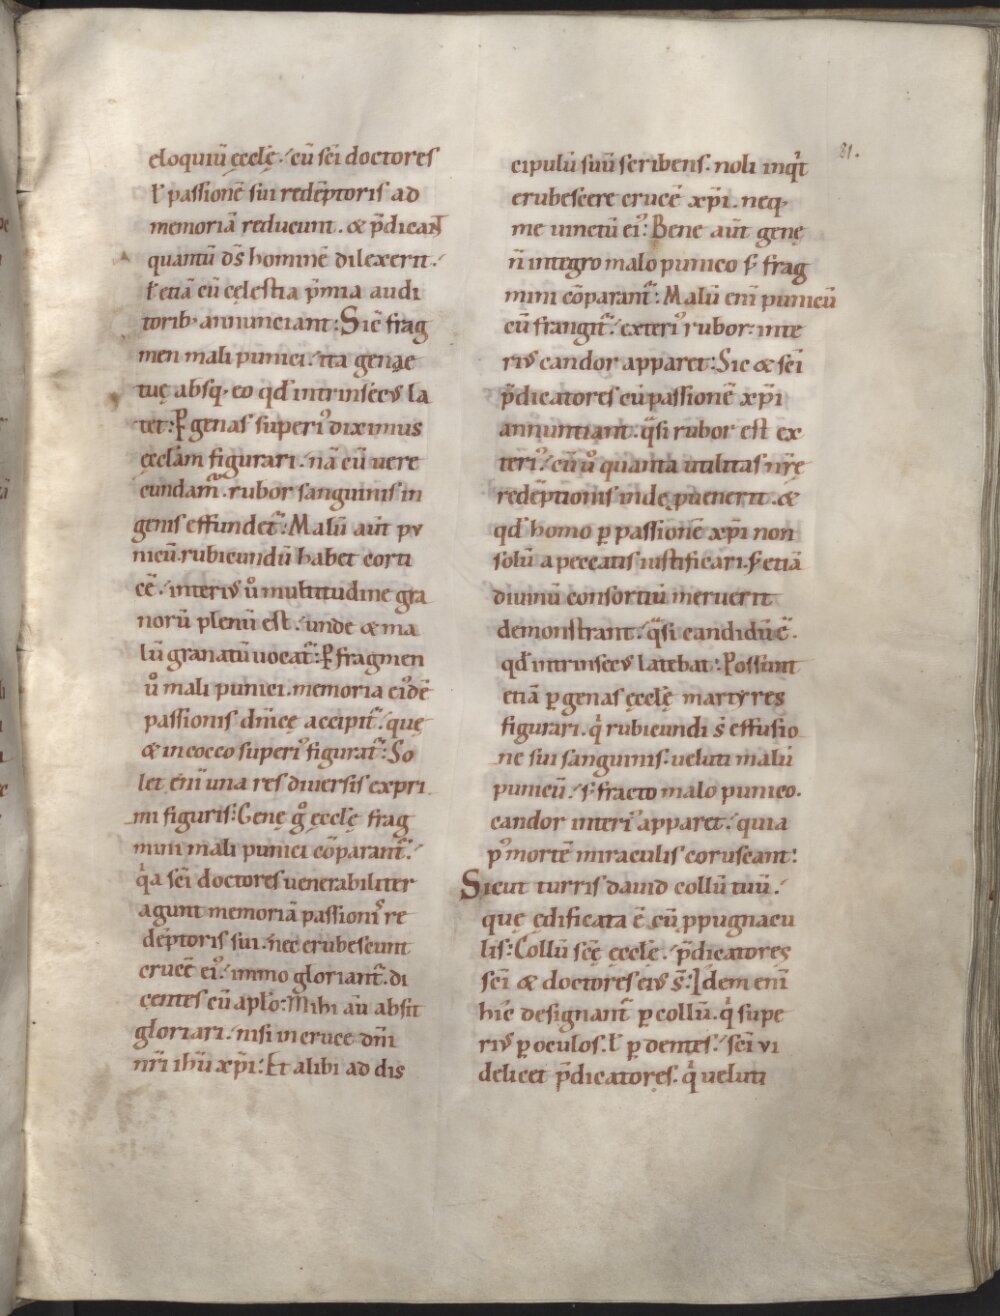 eloquiū ęcclę̄. cū sc̄i doctores
ł passionē sui redēptoris ad
memoriā reducunt. & p̄dicant
quantū ds̄ hominē dilexerit.
ł etiā cū cęlestia p̄mia audi
torib; annunciant: Sic̄ frag
men mali punici. ita genae
tuę absq; eo qđ intrinsecus la
tet: Ꝑ genas superiꝰ diximus
ęcclam figurari. nā cū uere
cundam̃. rubor sanguinis in
genis effundet̃: Malū aūt pu
nicū. rubicundū habet corti
cē. interius ů multitudine gra
norū plenū est. unde & ma
lū granatū uocat̃: Ꝑ fragmen
ů mali punici. memoria eiꝰdē
passionis dn̄icę accipit̃. quę
& in cocco superiꝰ figurat̃: So
let enī una res diuersis expri
mi figuris: Genę g̊ ęcclę frag
mini mali punici cōparant̃.
qͥa sc̄i doctores uenerabiliter
agunt memoriā passionis re
dēptoris sui. nec erubescunt
crucē eiꝰ. immo gloriant̃. di
centes cū aplo: Mihi aū absit
gloriari. nisi in cruce dn̄i
nr̄i ihū xp̄i: Et alibi ad dis
21.
cipulū suū scribens. noli inqͥt
erubescere crucē xp̄i. neq;
me uinctū eiꝰ: Bene aūt genę
n̄ integro malo punico s; frag
mini cōparant̃: Malū enī punicū
cū frangit̃. exteriꝰ rubor. inte
rius candor apparet: Sic & sc̄i
p̄dicatores cū passionē xp̄i
annuntiant. qͣsi rubor est ex
teriꝰ. cū ů quanta utilitas nr̄ę
redēptionis inde ꝓuenerit. &
qđ homo ꝑ passionē xp̄i non
solū a peccatis iustificari. s; etiā
diuinū consortiū meruerit
demonstrant. qͣsi candidū ē.
qđ intrinsecus latebat: Possunt
etiā ꝑ genas ęcclę martyres
figurari. qͥ rubicundi s̄ effusio
ne sui sanguinis. ueluti malū
punicū. s; fracto malo punico.
candor interiꝰ apparet. quia
pꝰ mortē miraculis coruscant:
Sicut turris dauid collū tuū.
quę ędificata ē cū ꝓpugnacu
lis: Collū sc̄ę ęcclę. p̄dicatores
sc̄i & doctores eius s̄: Idem enī
hic designant̃ ꝑ collū. qͥ supe
rius ꝑ oculos. ł ꝑ dentes. sc̄i ui
delicet p̄dicatores. qͥ ueluti